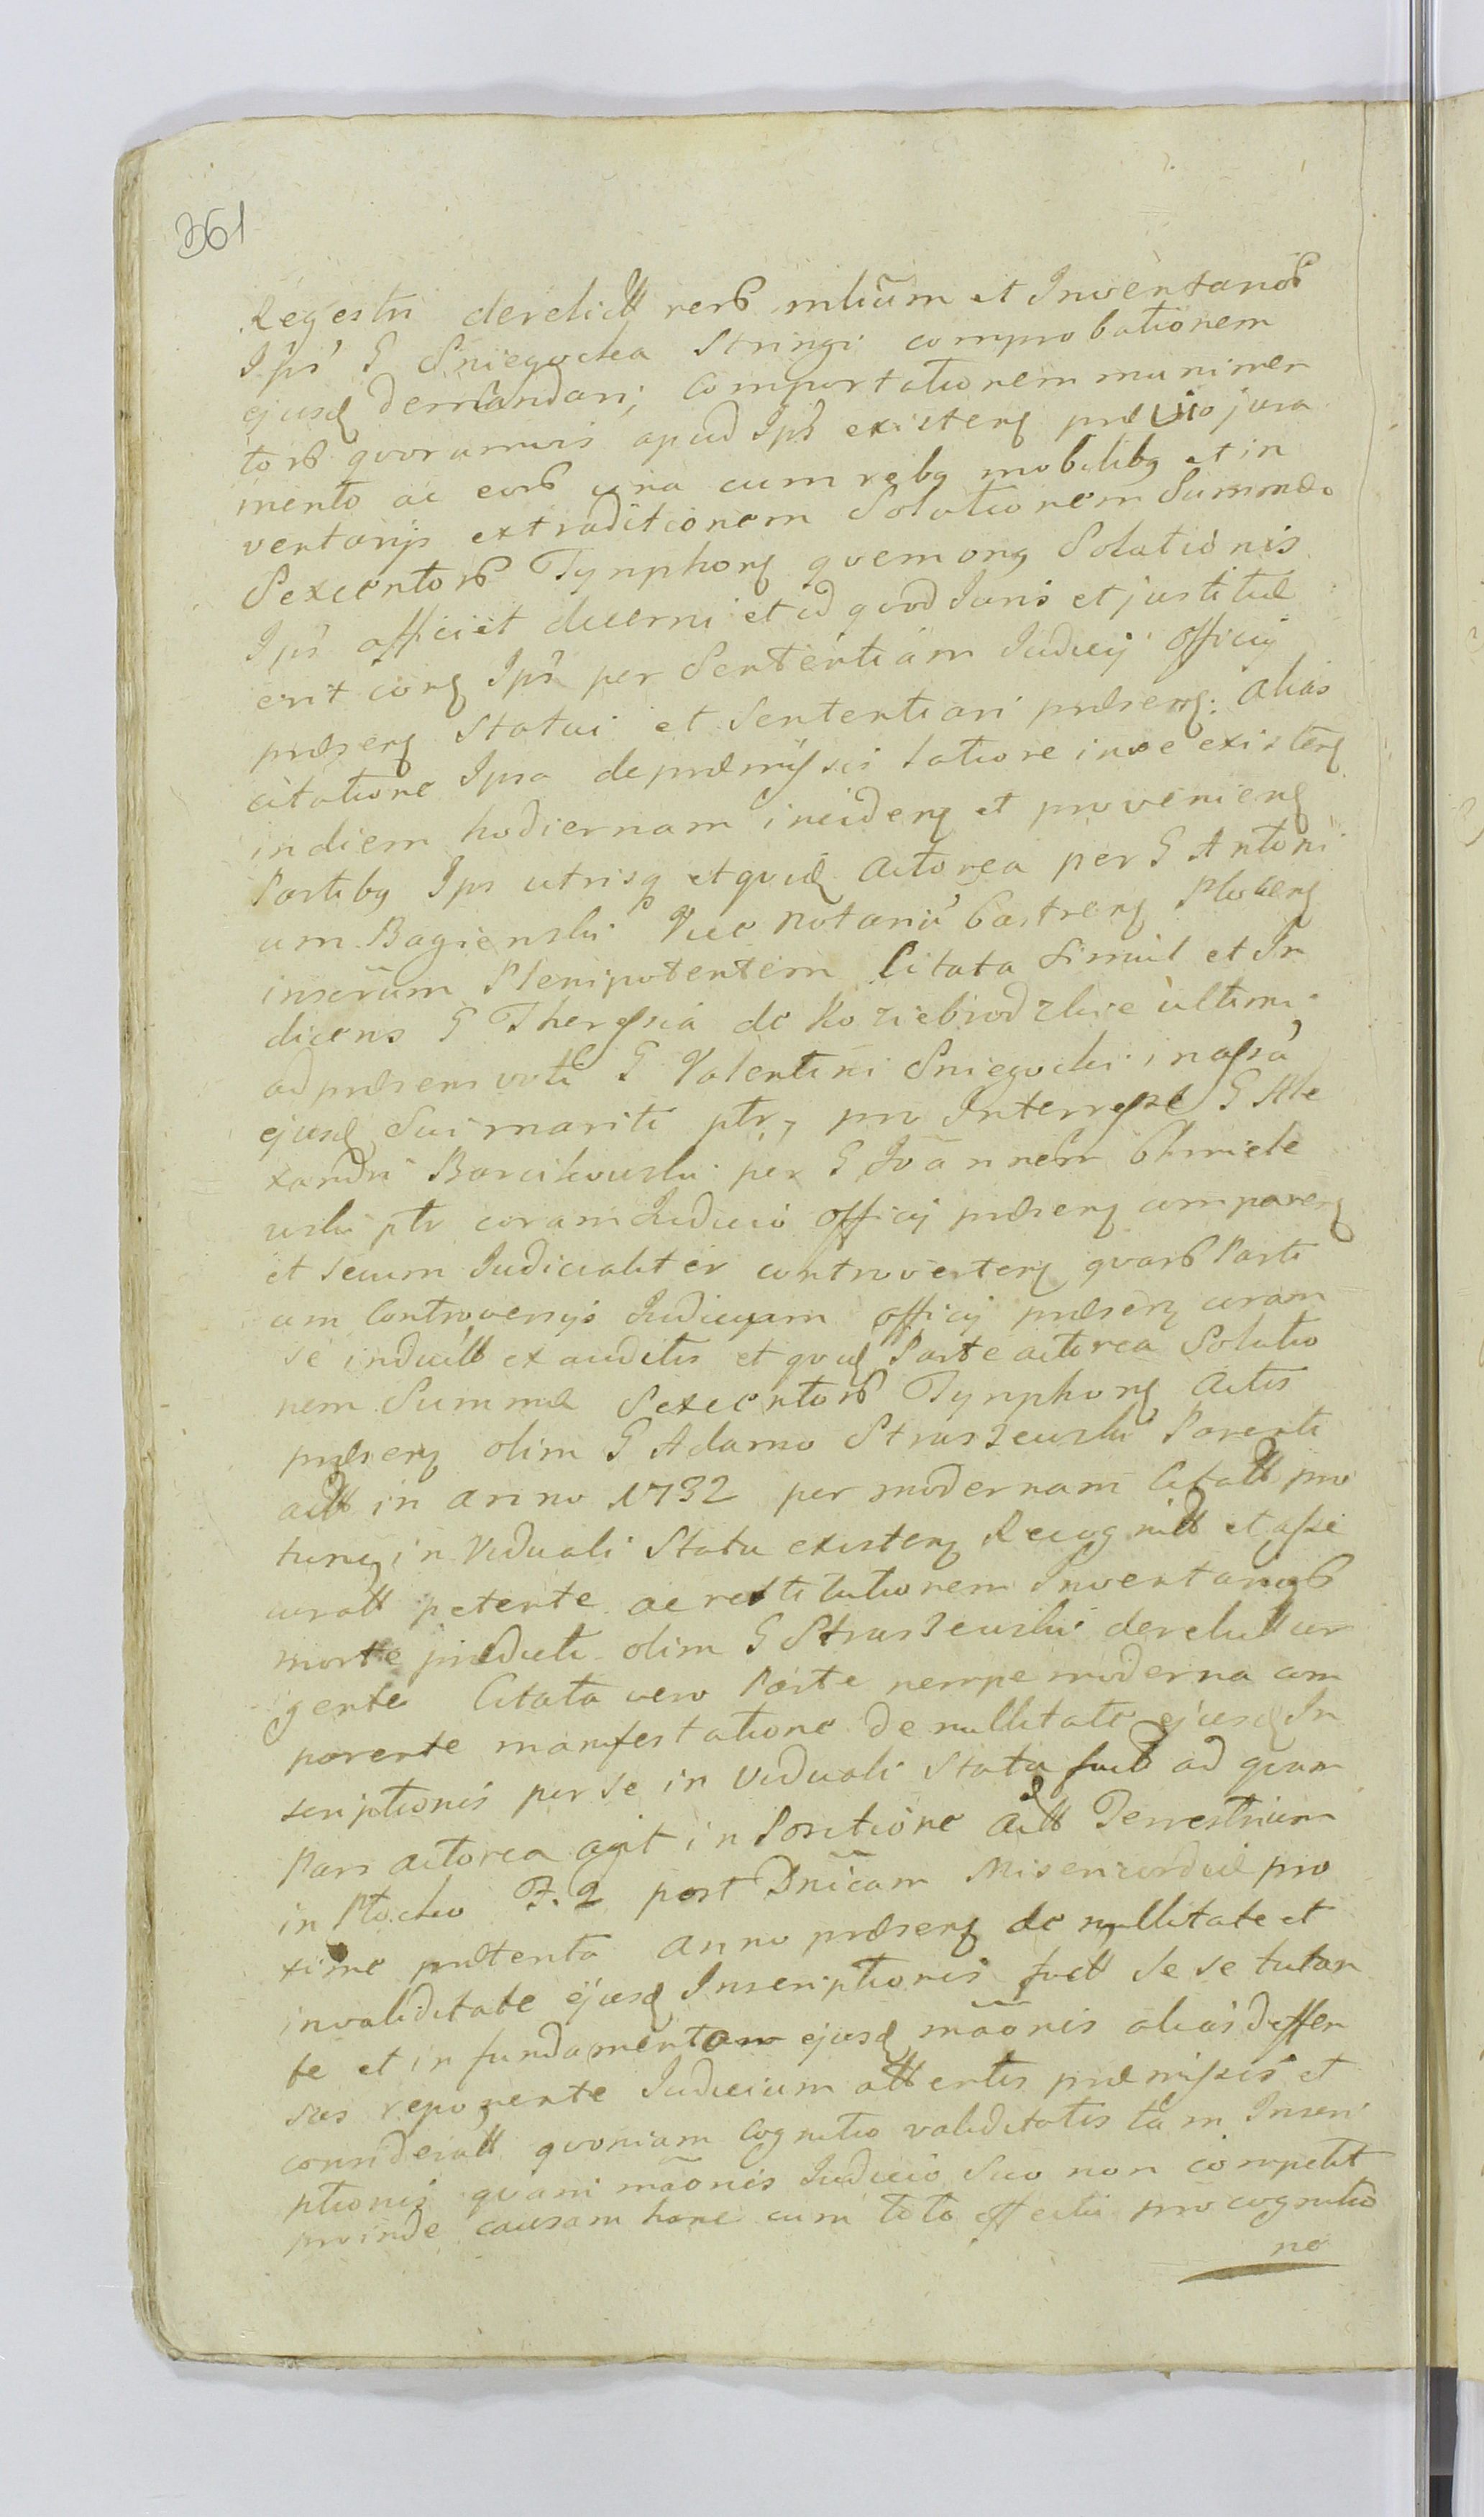 361
Regestri derelictt rerb mlium et Inventariorb
Ips G Sniegocka stringi comprobationem
ejusd demandari, comportationem munimen
torb quorumvis apud Ips existen prævio jura
mento ac eorb una cum rebq mobilibq et in
ventarijs extraditionem Solutionem Summæ
Sexcentorb Tynphor quemonq Solutionis
Ips officiet decerni et id quod Juris et justitiæ
erit cor Ips per Sententiam Judicij officij
præsen statui et sententiari præsen: alias
citatione Ipsa de præmissis latiore in se existen
in diem hodiernam inciden et provenien
Partibq Ips utrisq et quid actorea per G Antoni
um Bagienski Vice Notariu Castren Plocen
inscrum Plenipotentem Citata simul et In
dicens G Theressia de Koziebrodzkie ultimi
ad præsens voti G Valentini Sniegocki in assa
ejusd Sui mariti ptr, pro Interesse G Ale
xandri Barcikowski per G Joannem Chmiele
wski ptr coram Judicio officij præsen comparen
et secum Judicialiter controverten quarb Parti
um Controversijs Judicium officij præsen coram
se inductt exauditis et quid Parte actorea Solutio
nem Summæ Sexcentorb Tynphor Actis
præsen olim G Adamo Straszewski Parenti
actt in anno 1732 per modernam Citatt pro
tunc in Viduali Statu existen Recognitt et asse
curatt petente ac restitutionem Inventariorb
morte prædicti olim G Straszewski derelictt ur
gente Citata vero Parte nempe moderna com
parente manifestatione de nullitate ejusd In
scriptionis per se in Viduali statu fact ad quam
Pars actorea agit in Positione Actt Terrestrium
in Plocko F. 2 post Dnicam Misericordiæ pro
xime prætenta anno præsen de nullitate et
invaliditate ejusd Inscriptionis fact se se tutan
te et in fundamentum ejusd maonis alias deffen
sas reponente Judicium attentis præmissis et
consideratt quoniam Cognitio validitatis tam Inscri
ptionis quam maonis Judicio Suo non competit
proinde causam hanc cum toto effectu pro cognitio
ne